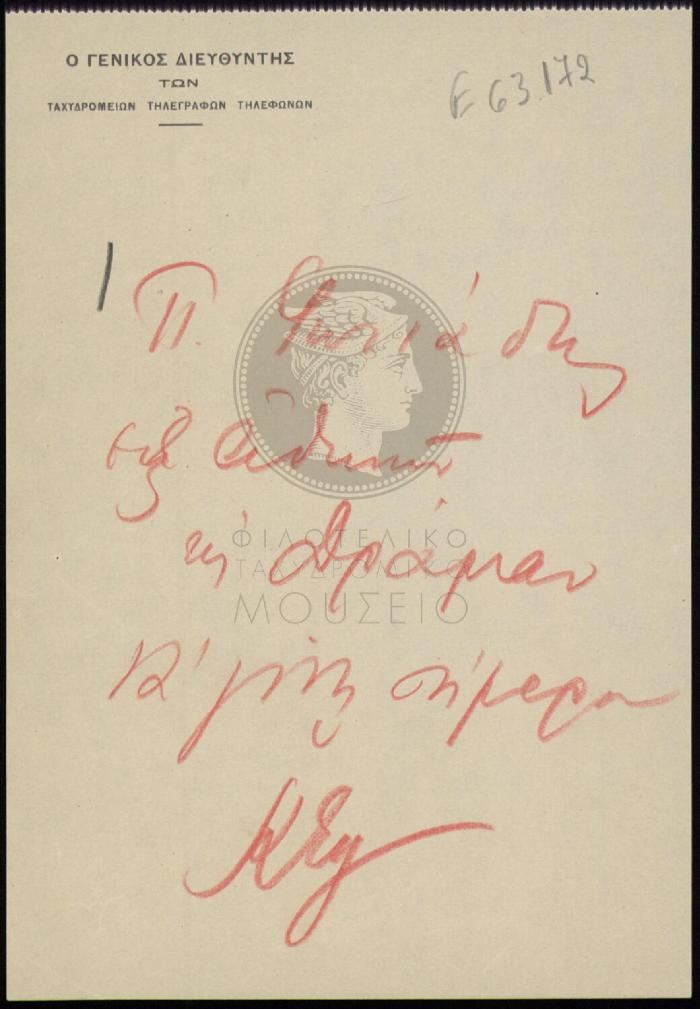 Ο ΓΕΝΙΚΟΣ ΔΙΕΥΘΥΝΤΗΣ
ΤΩΝ
ΤΑΧΥΔΡΟΜΕΙΩΝ ΤΗΛΕΓΡΑΦΩΝ ΤΗΛΕΦΩΝΩΝ
Ε 63.172
Π. Φωτιάδης
εξ Αθηνών
εις Δράμαν
Ν' γίνη σήμερον
ΦΙΛΟΤΕΛΙΚΟ
ΤΑΧΥΔΡΟΜΙΚΟ
ΜΟΥΣΕΙΟ